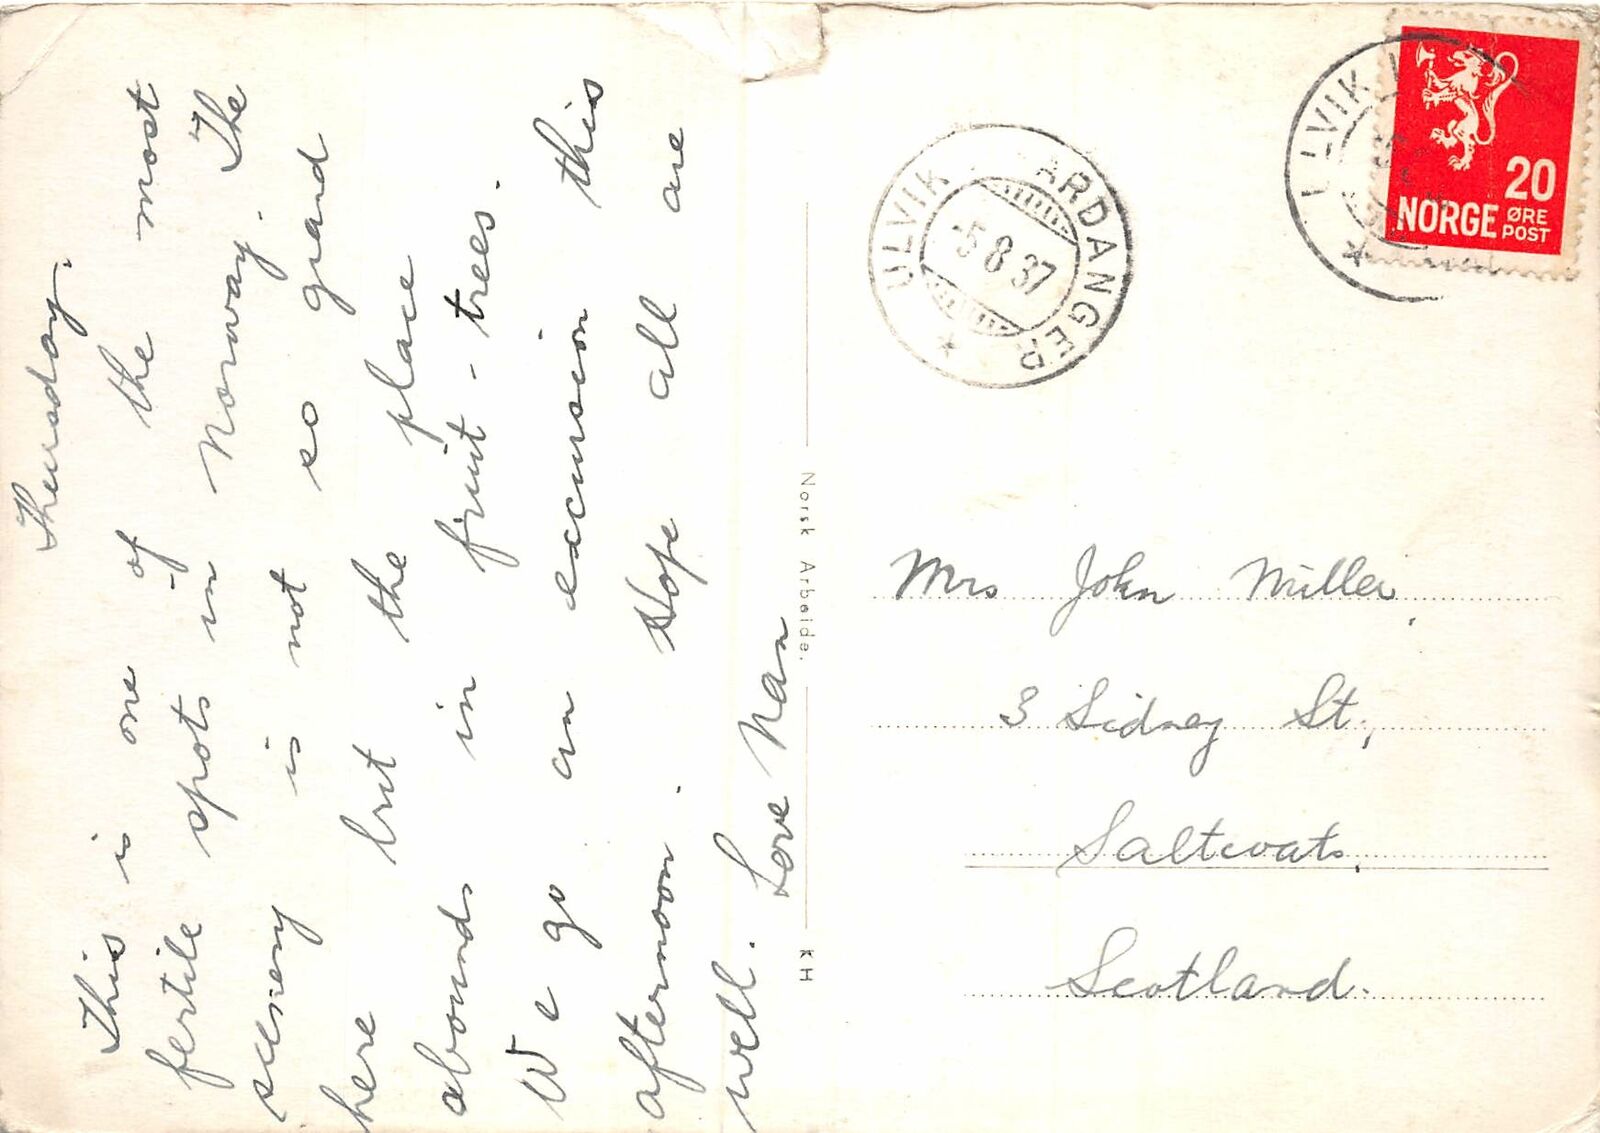 Thursday.
This is one of the most
fertile spots in Norway. The
scenery is not so grand
here but the place
abounds in fruit-trees.
We go an excursion this
afternoon. Hope all are
well. Love Nan
Norsk Arbeide.
KH
ULVIK ARDANGER
-5 8 37
ULVIK
20
NORGE ØRE
POST
Mrs John Miller,
3 Sidney St.,
Saltcoats,
Scotland.